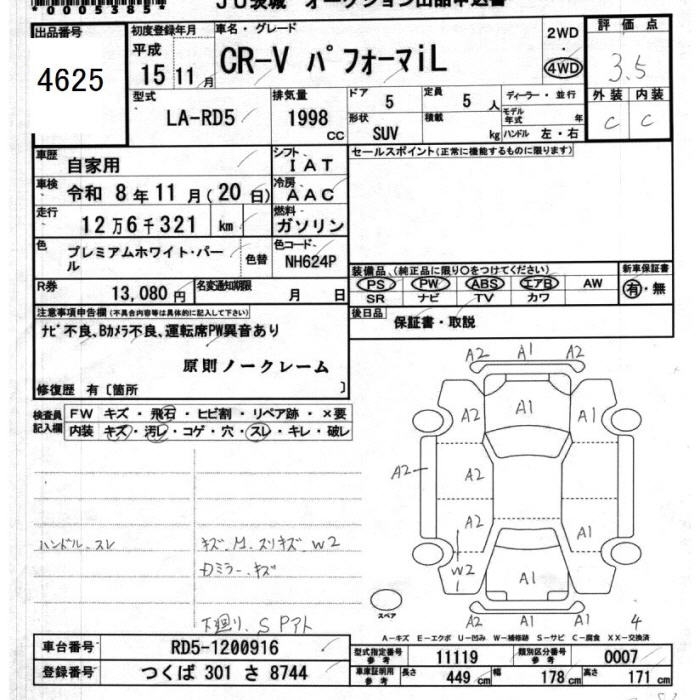 *0005385*
JU茨城 オークション出品申込書
出品番号 4625
初度登録年月 平成 15年 11月
車名・グレード CR-V パフォーマiL
2WD ・ 4WD
評価点 3.5
外装 C 内装 C
型式 LA-RD5
排気量 1998 CC
ドア 5 定員 5人
形状 SUV 積載 kg
ディーラー・並行
モデル年式 年
ハンドル 左・右
車歴 自家用
シフト IAT
セールスポイント(正常に機能するものに限ります)
車検 令和 8年 11月 (20日)
冷房 AAC
走行 12万6千321 km
燃料 ガソリン
色 プレミアムホワイト・パール 色替
色コード NH624P
装備品 (純正品に限り○をつけてください)
新車保証書
PS PW ABS エアB AW 有・無
SR ナビ TV カワ
R券 13,080円
名変通知期限 月 日
後日品 保証書・取説
注意事項申告欄(不具合内容等は具体的に記入して下さい)
ナビ不良、Bカメラ不良、運転席PW異音あり
原則ノークレーム
修復歴 有〔箇所 〕
検査員記入欄
FW キズ・飛石・ヒビ割・リペア跡・×要
内装 キズ・汚レ・コゲ・穴・スレ・キレ・破レ
ハンドル、スレ
キズ、M、スリキズ、W2
ミラー、キズ
下廻り、S Pアト
A2 A1 A2
A2 A1 A1
A2 A2
A2 A1
W2 A1
A1 A1
4
スペア
A-キズ E-エクボ U-凹み W-補修跡 S-サビ C-腐食 XX-交換済
車台番号 RD5-1200916
型式指定番号 参考 11119
類別区分番号 参考 0007
登録番号 つくば 301 さ 8744
車庫証明用 参考 長さ 449 cm 幅 178 cm 高さ 171 cm